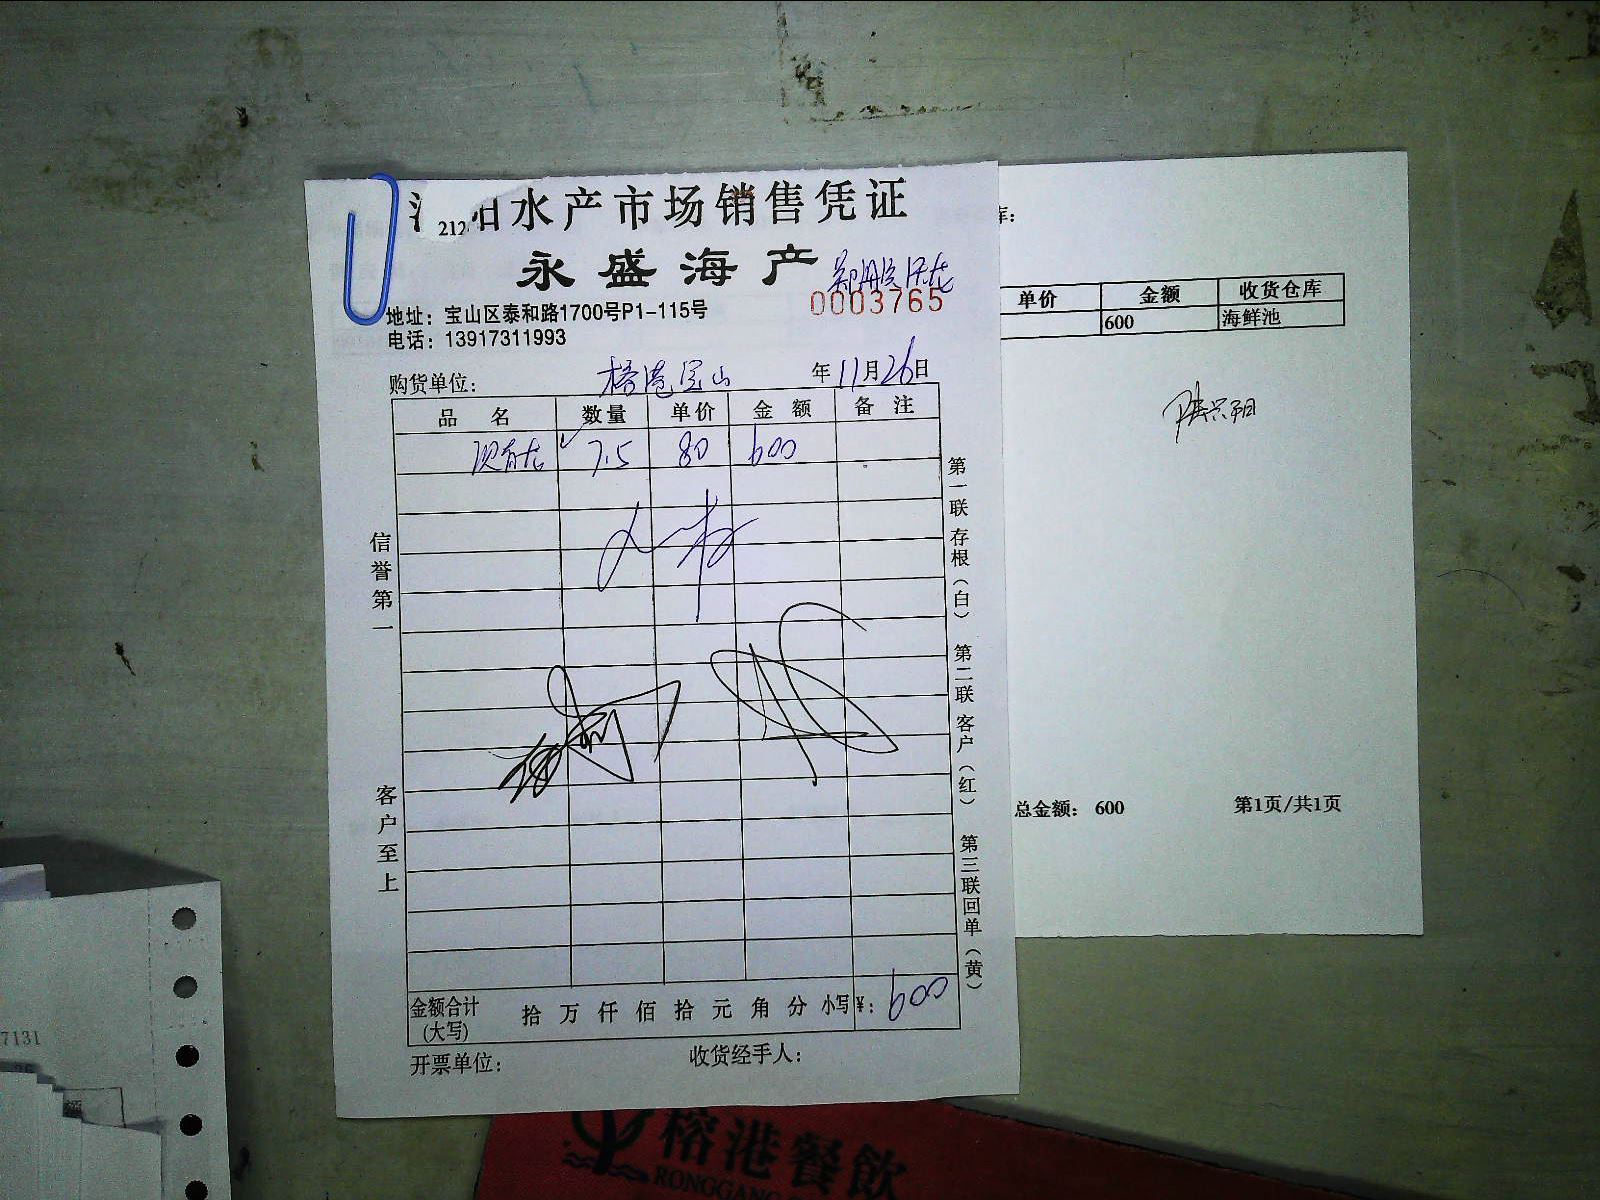 212
阳水产市场销售凭证
永盛海产
0003765
地址：宝山区泰和路1700号P1-115号
电话：13917311993
购货单位： 榕港宝山 年11月26日
品名 数量 单价 金额 备注
7.5 80 600
信誉第一
客户至上
第一联存根（白）
第二联客户（红）
第三联回单（黄）
金额合计 拾万仟佰拾元角分 小写¥：600
(大写)
开票单位： 收货经手人：
库：
单价 金额 收货仓库
600 海鲜池
总金额： 600 第1页/共1页
7131
榕港餐飲
RONGGANG